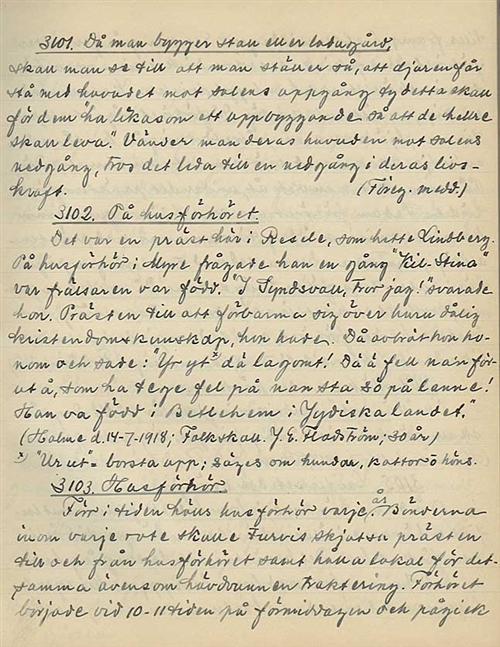 3101. Då man bygger stall eller ladugård,
skall man se till att man ställer så, att djuren får
stå med huvudet mot solens uppgång ty detta skall
för dem "ha likasom ett uppbyggande så att de hellre
skall leva." Vänder man deras huvuden mot solens
nedgång, tros det leda till en nedgång i deras livs-
kraft. (Föreg. medd.)
3102. På husförhöret.
Det var en präst här i Resele, som hette Lindberg.
På husförhör i Myre frågade han en gång "Kil-Stina"
var frälsaren var född. "I Syndsvall, tror jag!" svarade
hon. Prästen till att förbarma sig över huru dålig
kristendomskunskap, hon hade. Då avbröt hon ho-
nom och sade: "Yr yt x) då lagomt! Dä ä fell na'n för-
ut å, som ha tege fel på nan sta så på lanne!
Han va född i Betlehem i Jydiska landet."
(Holme d. 14-7-1918; Folkskall. J. E. Flodström; 50 år)
x) "Ur ut" = borsta upp; säges om hundar, kattor o höns.
3103. Husförhör.
Förr i tiden hölls husförhör varje år. Bönderna
inom varje rote skulle turvis skjutsa prästen
till och från husförhöret samt hålla lokal för det-
samma ävensom hävdvunnen traktering. Förhöret
började vid 10-11 tiden på förmiddagen och pågick